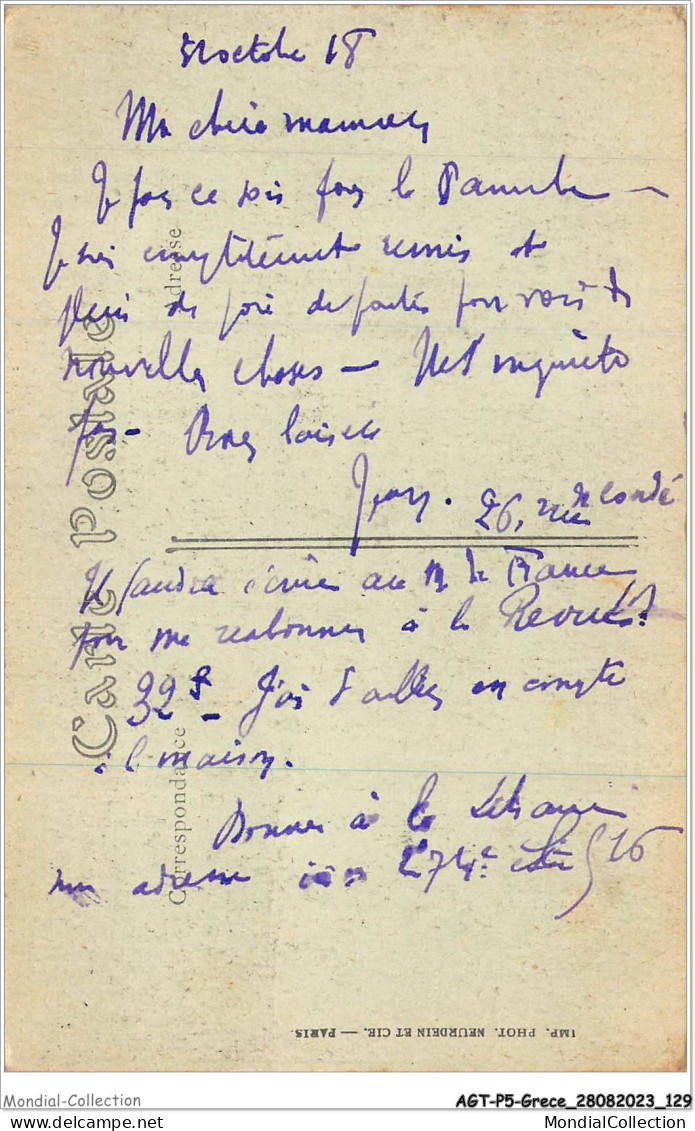 31 octobre 18
Ma chère maman
Je pars ce soir pour le Danube —
Je suis complètement remis et
plein de joie de partir pour voir de
nouvelles choses — Ne t'inquiète
pas — Bons baisers
Jean. 26, rue de Condé
Il faudra écrire au M de France
pour me réabonner à la Revue
32 f — J'ai d'ailleurs un compte
à la maison.
Donner à la
mon adresse 274e 516
Carte Postale
Correspondance
Adresse
IMP. PHOT. NEURDEIN ET CIE. — PARIS.
Mondial-Collection
AGT-P5-Grece_28082023_129
MondialCollection.com
MondialCollection